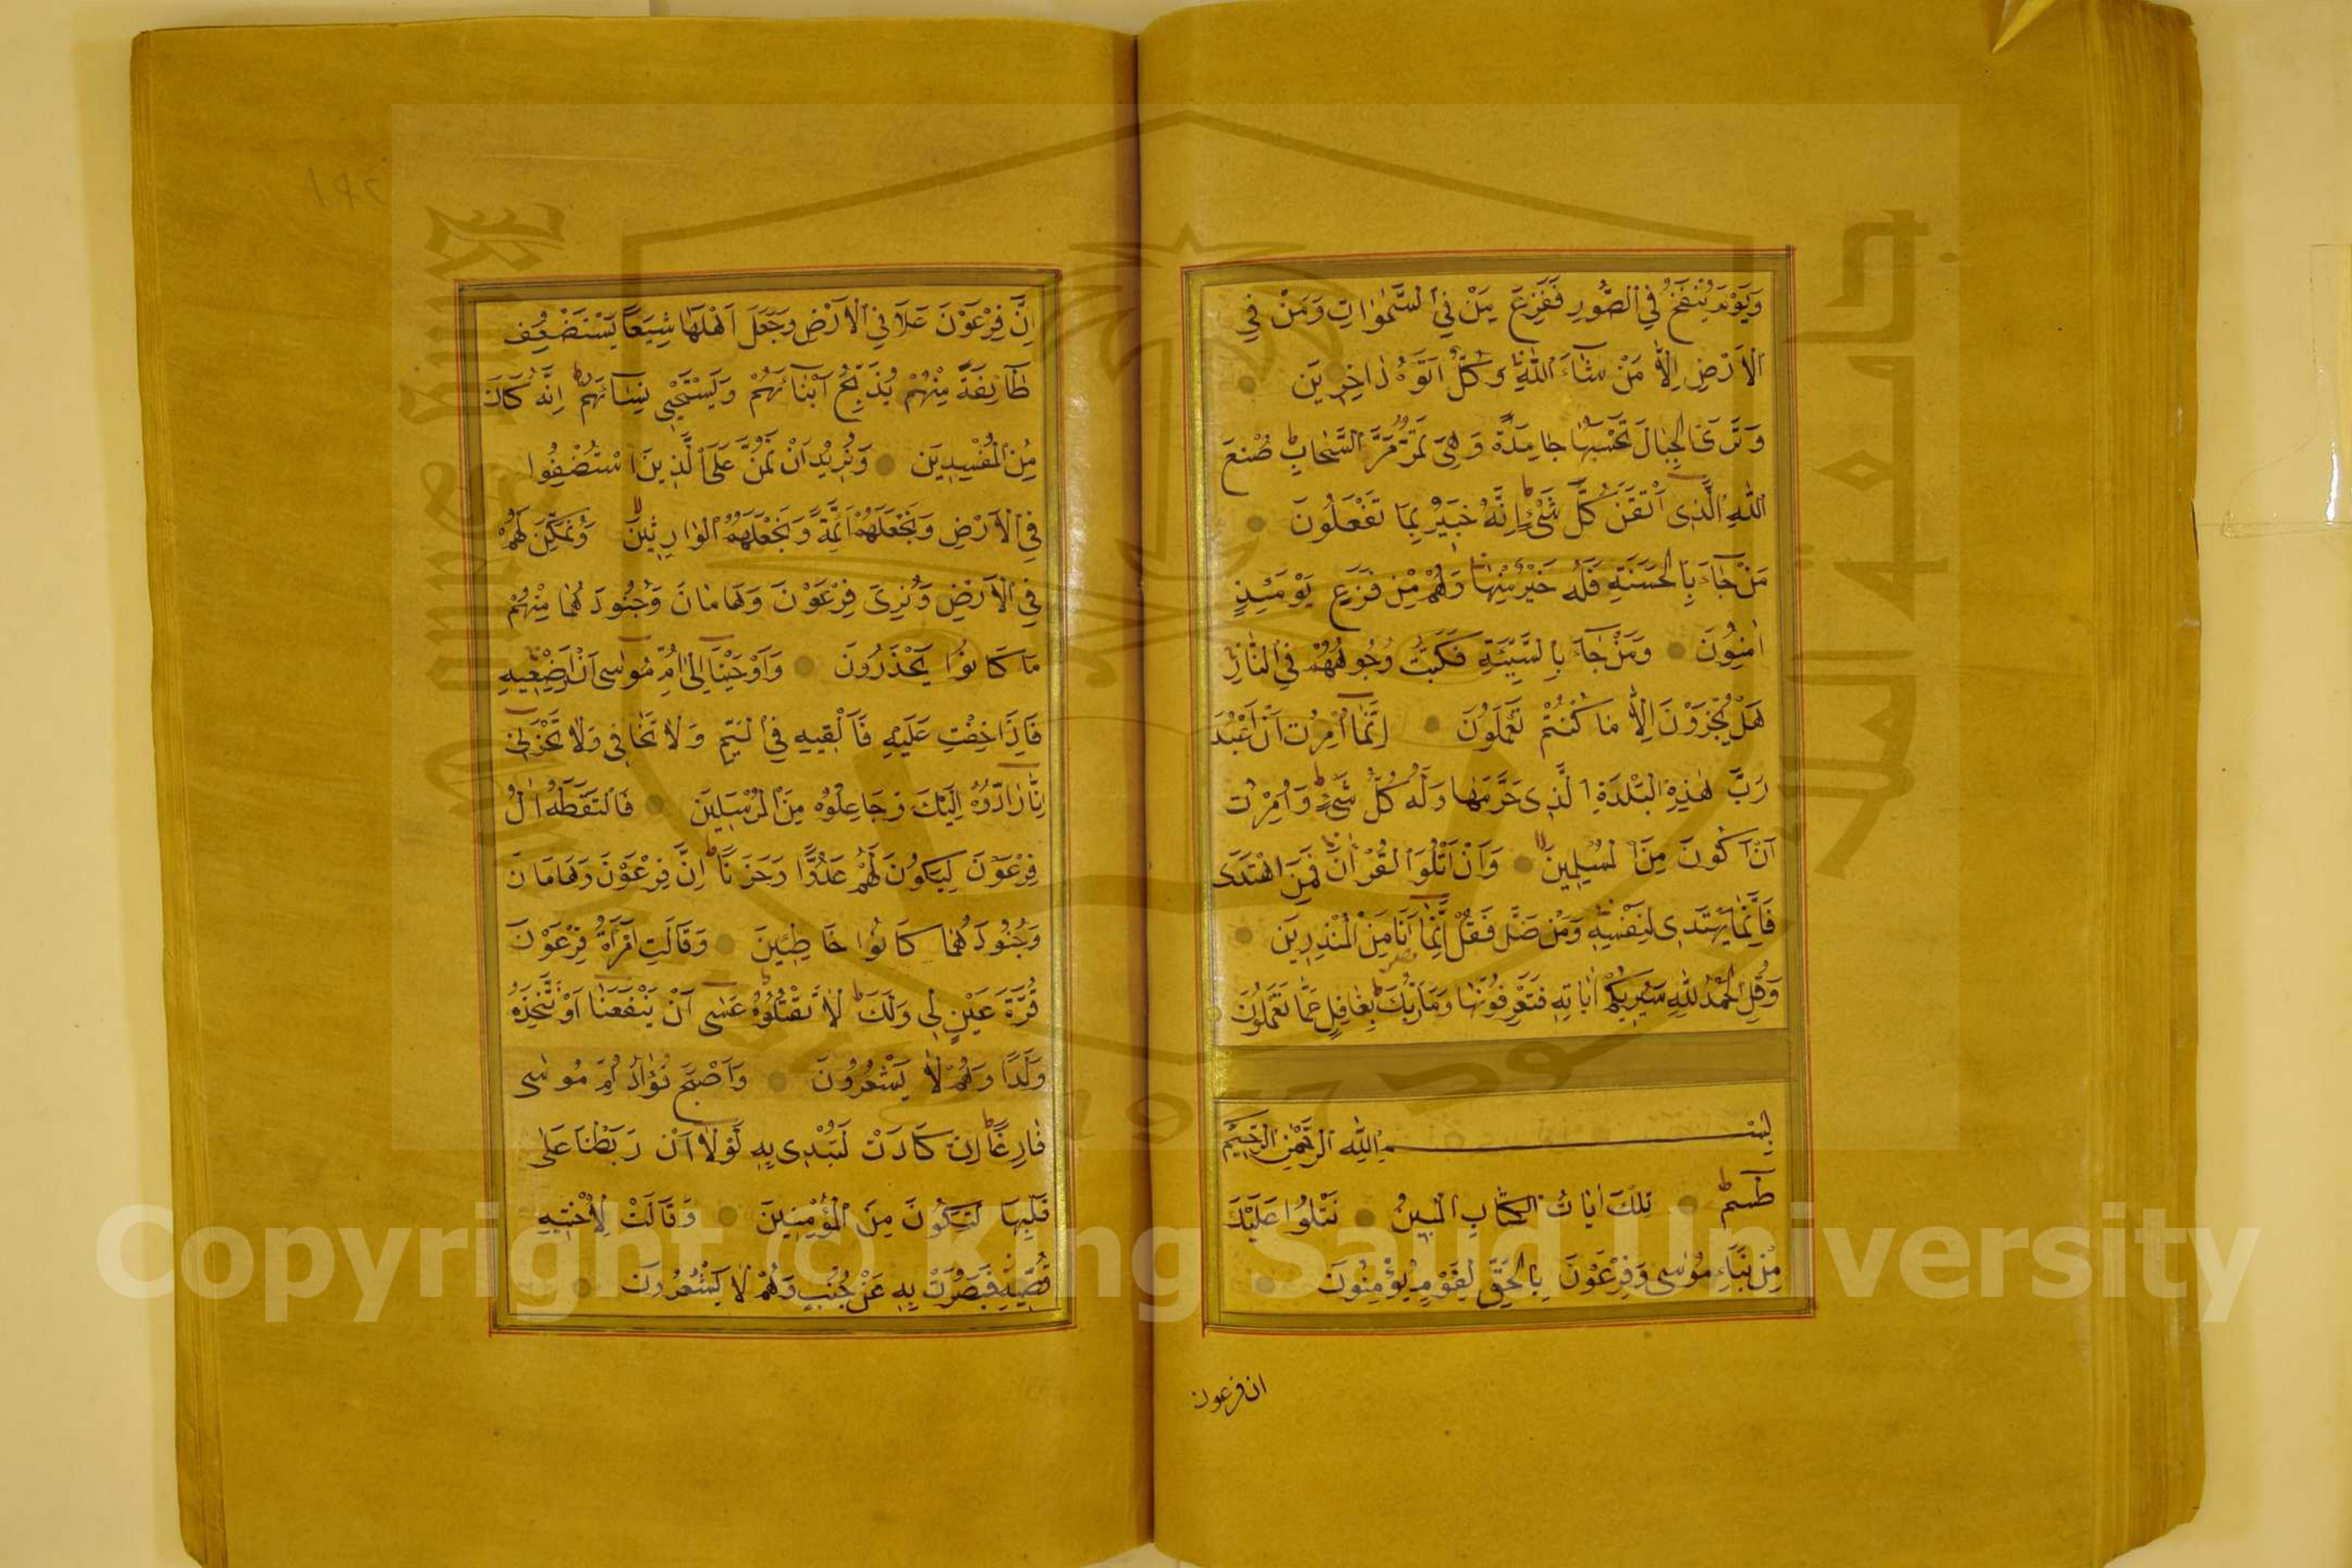 وَيَوْمَ يُنْفَخُ فِي الصُّورِ فَفَزِعَ مَنْ فِي السَّمٰوَاتِ وَمَنْ فِي
الْاَرْضِ اِلَّا مَنْ شَآءَ اللّٰهُ وَكُلٌّ اَتَوْهُ دَاخِرِينَ
وَتَرَى الْجِبَالَ تَحْسَبُهَا جَامِدَةً وَهِيَ تَمُرُّ مَرَّ السَّحَابِ صُنْعَ
اللّٰهِ الَّذِى اَتْقَنَ كُلَّ شَىْءٍ اِنَّهُ خَبِيرٌ بِمَا تَفْعَلُونَ
مَنْ جَآءَ بِالْحَسَنَةِ فَلَهُ خَيْرٌ مِنْهَا وَهُمْ مِنْ فَزَعٍ يَوْمَئِذٍ
اٰمِنُونَ وَمَنْ جَآءَ بِالسَّيِّئَةِ فَكُبَّتْ وُجُوهُهُمْ فِي النَّارِ
هَلْ تُجْزَوْنَ اِلَّا مَا كُنْتُمْ تَعْمَلُونَ اِنَّمَا اُمِرْتُ اَنْ اَعْبُدَ
رَبَّ هٰذِهِ الْبَلْدَةِ الَّذِى حَرَّمَهَا وَلَهُ كُلُّ شَىْءٍ وَاُمِرْتُ
اَنْ اَكُونَ مِنَ الْمُسْلِمِينَ وَاَنْ اَتْلُوَ الْقُرْاٰنَ فَمَنِ اهْتَدَى
فَاِنَّمَا يَهْتَدِى لِنَفْسِهِ وَمَنْ ضَلَّ فَقُلْ اِنَّمَا اَنَا مِنَ الْمُنْذِرِينَ
وَقُلِ الْحَمْدُ لِلّٰهِ سَيُرِيكُمْ اٰيَاتِهِ فَتَعْرِفُونَهَا وَمَا رَبُّكَ بِغَافِلٍ عَمَّا تَعْمَلُونَ
بِسْمِ اللّٰهِ الرَّحْمٰنِ الرَّحِيمِ
طٰسٓمٓ تِلْكَ اٰيَاتُ الْكِتَابِ الْمُبِينِ نَتْلُوا عَلَيْكَ
مِنْ نَبَاءِ مُوسٰى وَفِرْعَوْنَ بِالْحَقِّ لِقَوْمٍ يُؤْمِنُونَ
ان فرعون
اِنَّ فِرْعَوْنَ عَلَا فِي الْاَرْضِ وَجَعَلَ اَهْلَهَا شِيَعًا يَسْتَضْعِفُ
طَآئِفَةً مِنْهُمْ يُذَبِّحُ اَبْنَآئَهُمْ وَيَسْتَحْيِى نِسَآئَهُمْ اِنَّهُ كَانَ
مِنَ الْمُفْسِدِينَ وَنُرِيدُ اَنْ نَمُنَّ عَلَى الَّذِينَ اسْتُضْعِفُوا
فِي الْاَرْضِ وَنَجْعَلَهُمْ اَئِمَّةً وَنَجْعَلَهُمُ الْوَارِثِينَ وَنُمَكِّنَ لَهُمْ
فِي الْاَرْضِ وَنُرِىَ فِرْعَوْنَ وَهَامَانَ وَجُنُودَهُمَا مِنْهُمْ
مَا كَانُوا يَحْذَرُونَ وَاَوْحَيْنَا اِلٰى اُمِّ مُوسٰى اَنْ اَرْضِعِيهِ
فَاِذَا خِفْتِ عَلَيْهِ فَاَلْقِيهِ فِي الْيَمِّ وَلَا تَخَافِى وَلَا تَحْزَنِى
اِنَّا رَآدُّوهُ اِلَيْكِ وَجَاعِلُوهُ مِنَ الْمُرْسَلِينَ فَالْتَقَطَهُ اٰلُ
فِرْعَوْنَ لِيَكُونَ لَهُمْ عَدُوًّا وَحَزَنًا اِنَّ فِرْعَوْنَ وَهَامَانَ
وَجُنُودَهُمَا كَانُوا خَاطِئِينَ وَقَالَتِ امْرَاَةُ فِرْعَوْنَ
قُرَّةُ عَيْنٍ لِى وَلَكَ لَا تَقْتُلُوهُ عَسٰى اَنْ يَنْفَعَنَا اَوْ نَتَّخِذَهُ
وَلَدًا وَهُمْ لَا يَشْعُرُونَ وَاَصْبَحَ فُؤَادُ اُمِّ مُوسٰى
فَارِغًا اِنْ كَادَتْ لَتُبْدِى بِهِ لَوْلَا اَنْ رَبَطْنَا عَلٰى
قَلْبِهَا لِتَكُونَ مِنَ الْمُؤْمِنِينَ وَقَالَتْ لِاُخْتِهِ
قُصِّيهِ فَبَصُرَتْ بِهِ عَنْ جُنُبٍ وَهُمْ لَا يَشْعُرُونَ
Copyright © King Saud University